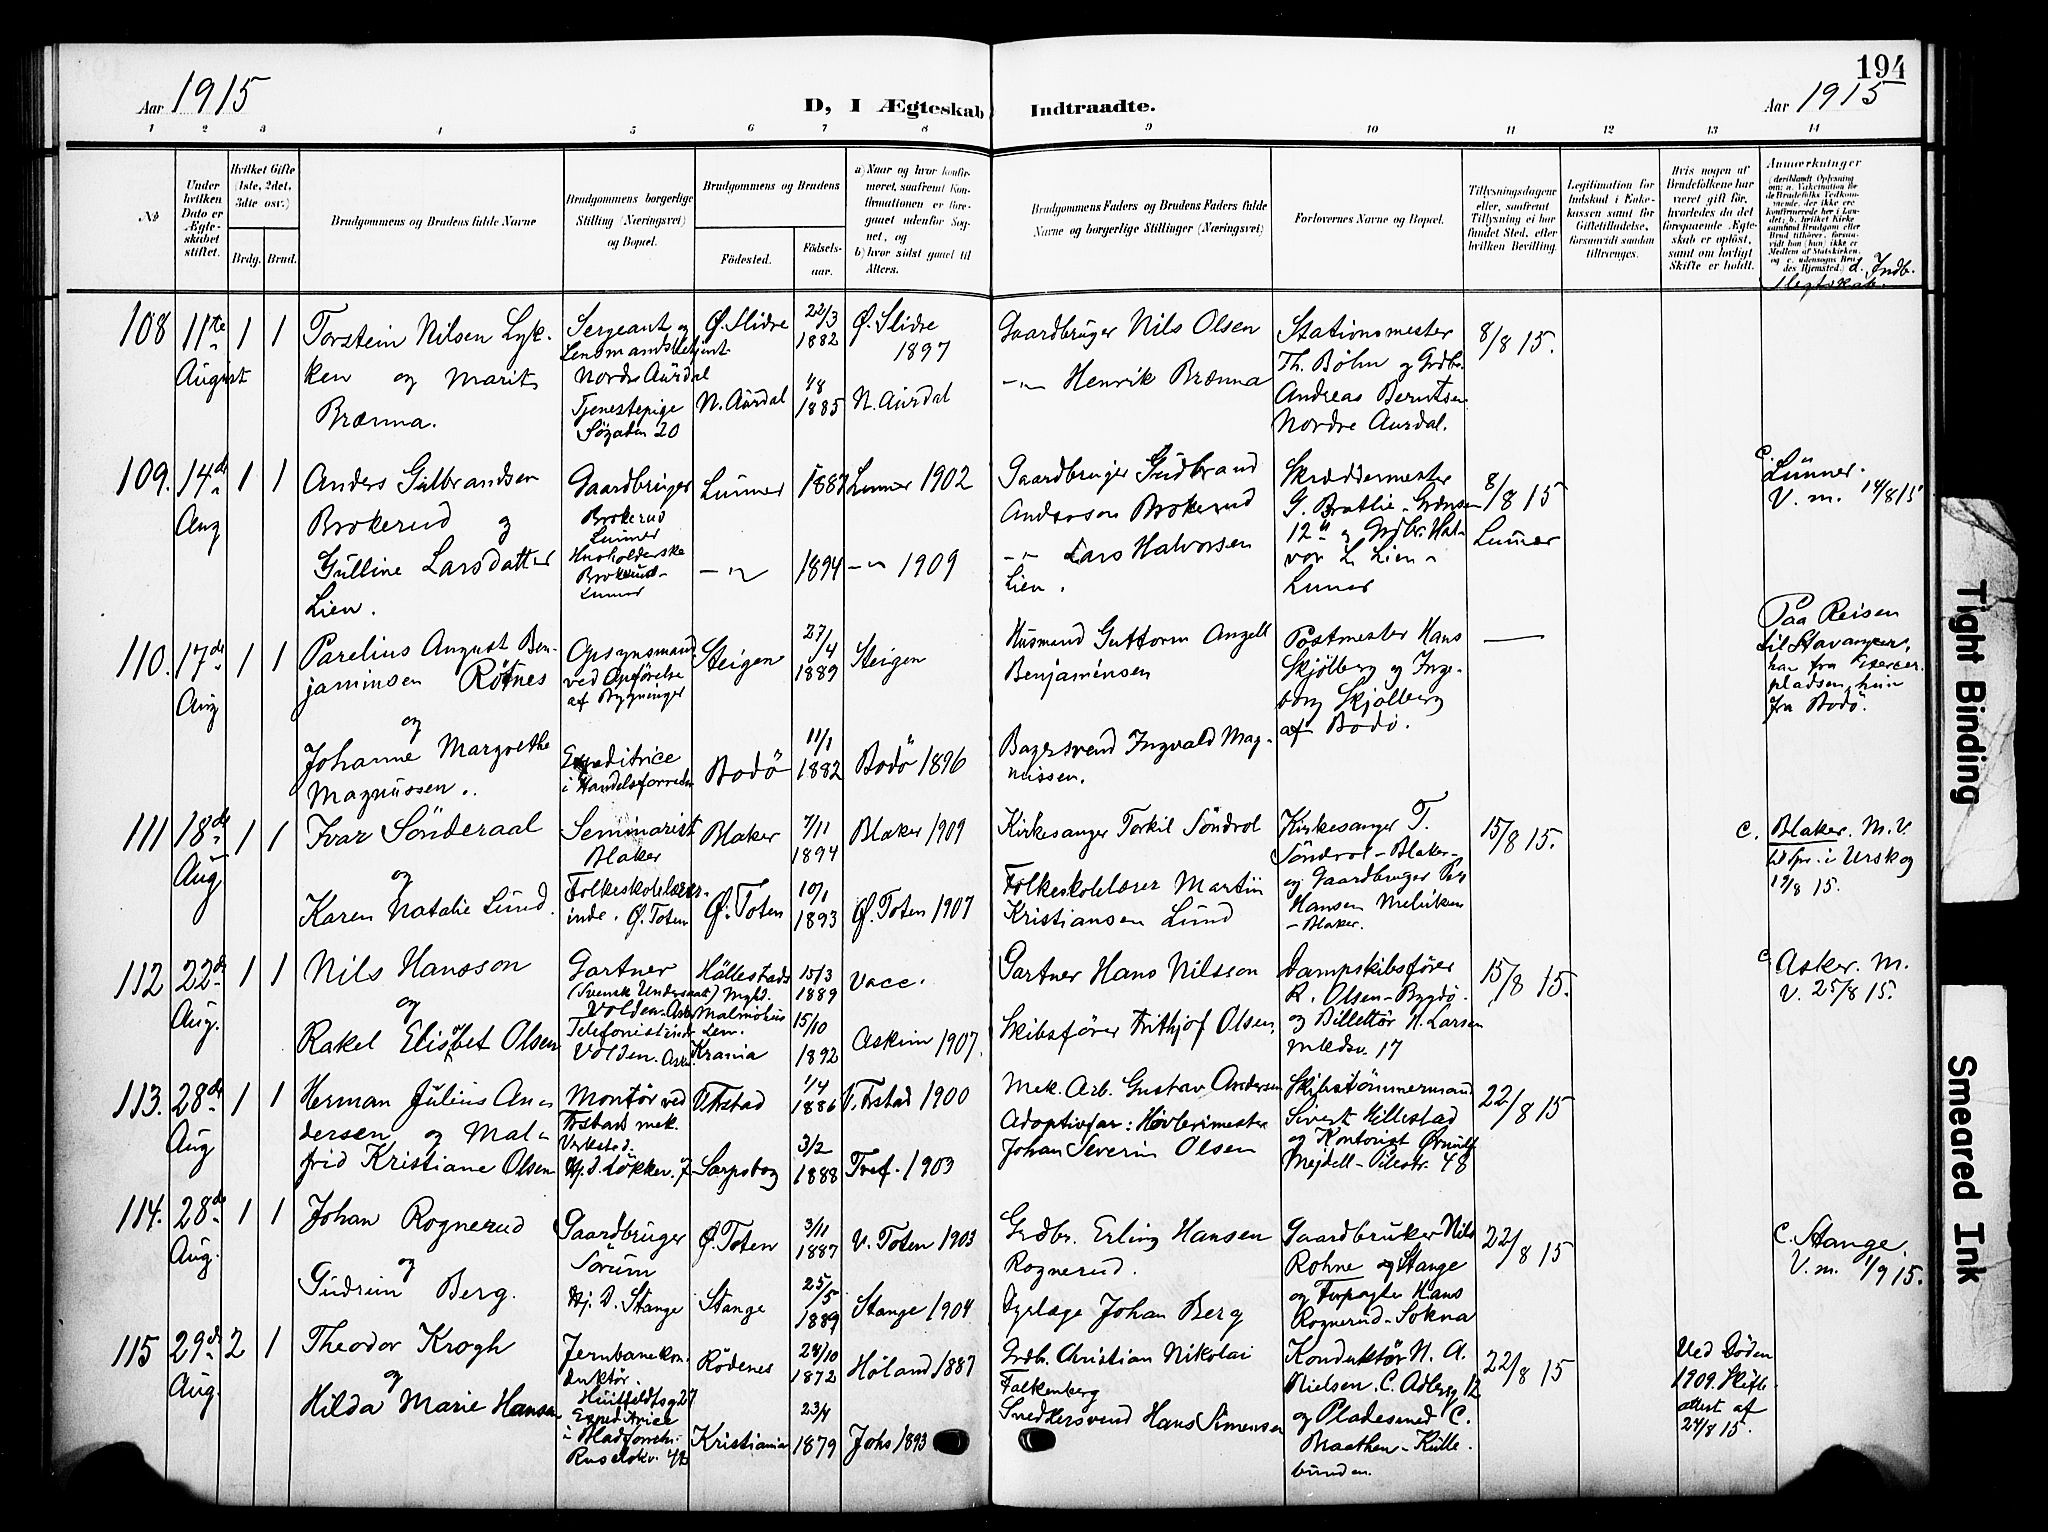 194
Aar 1915
D, I Ægteskab Indtraadte.
Aar 1915
1 2 3 4 5 6 7 8 9 10 11 12 13 14
No
Under hvilken Dato er Ægteskabet stiftet.
Hvilket Gifte (1ste, 2det, 3die osv.)
Brdg. Brud.
Brudgommens og Brudens fulde Navne
Brudgommens borgerlige Stilling (Næringsvei) og Bopæl.
Brudgommens og Brudens
Födested.
Födselsaar.
a) Naar og hvor konfirmeret, saafremt Konfirmationen er foregaaet udenfor Sognet, og
b) hvor sidst gaaet til Alters.
Brudgommens Faders og Brudens Faders fulde Navne og borgerlige Stillinger (Næringsvei)
Forlovernes Navne og Bopæl.
Tillysningsdagene eller, saafremt Tillysning ei har fundet Sted, efter hvilken Bevilling.
Legitimation for Indskud i Enkekassen samt for Giftetilladelse, forsaavidt saadan tiltrænges.
Hvis nogen af Brudefolkene har været gift før, hvorledes da det foregaaende Ægteskab er opløst, samt om lovligt Skifte er holdt.
Anmærkninger
d. Indb. Slegtskab.
108 11te August 1 1
Torstein Nilsen Lykken og Marit Brænna.
Sergeant og Lensmandsbetjent Nordre Aurdal
Tjenestepige Søgaden 20
Ø. Slidre 22/3 1882 Ø. Slidre 1897
N. Aurdal 1/8 1885 N. Aurdal
Gaardbruger Nils Olsen
-"- Henrik Brænna
Stationsmester Th. Bøhn og Grdbr. Andreas Berntsen Nordre Aurdal.
8/8 15.
109. 14de Aug 1 1
Anders Gulbrandsen Brokerud og Gulline Larsdatter Lien.
Gaardbruger Brokerud Lunner
Husholderske Brokerud - Lunner
Lunner 1887 Lunner 1902
-"- 1894 -"- 1909
Gaardbruger Gudbrand Anderson Brokerud
-"- Lars Halvorsen Lien.
Skræddermester G. Bratlie - Grænsen 12 og Grdbr. Halvor L. Lien - Lunner
8/8 15 Lunner
c. Lunner. V. m. 14/8 15
110. 17de Aug 1 1
Parelius August Benjaminsen Røtnes og Johanne Margrethe Magnussen.
Opsynsmand ved Opførelse af Bygninger
Expeditrice i Handelsforretn
Steigen 27/4 1889 Steigen
Bodö 11/1 1882 Bodö 1896
Husmand Guttorm Angell Benjaminsen
Bagersvend Ingvald Magnussen.
Postmester Hans Skjølberg og Ingeborg Skjølberg af Bodö.
—
Paa Reisen til Stavanger, han fra Exercerpladsen, hun fra Bodö.
111 18de Aug 1 1
Ivar Sønderaal og Karen Natalie Lund.
Seminarist Blaker
Folkeskolelærerinde, Ø. Toten
Blaker 7/11 1894 Blaker 1909
Ø. Toten 10/1 1893 Ø. Toten 1907
Kirkesanger Torkil Söndrol
Folkeskolelærer Martin Kristiansen Lund
Kirkesanger T. Söndrol - Blaker - og Gaardbruger Hansen - Blaker.
15/8 15.
c. Blaker. M. V. til Spr. i Urskog 19/8 15.
112 22de Aug. 1 1
Nils Hansson og Rakel Elisabet Olsen
Gartner (Svensk Undersaat) Volden. Asker
Telefonistinde Volden. Asker
Hällestads Mgld. Malmöhus Len. 15/3 1889 Vacc.
Krania 15/10 1892 Askim 1907.
Gartner Hans Nilsson
Skibsfører Frithjof Olsen.
Dampskibsfører R. Olsen - Bygdö og Billettör N. Larsen Mledsv. 17
15/8 15.
c. Asker. M. V. 25/8 15.
113. 28de Aug 1 1
Herman Julius Andersen og Malfrid Kristiane Olsen
Montør ved Frstads mek. Verksted.
Hj. d. Løkkev. 7
Frstad 1/4 1886 V. Frstad 1900
Sarpsborg 3/2 1888 Tref. 1903
Mek. Arb. Gustav Andersen
Adoptivfar: Høvlerimester Johan Severin Olsen
Skibstømmermand Sivert Hillestad og Kontorist Ørnulf Mejdell - Pilestr. 48
22/8 15
114. 28de Aug. 1 1
Johan Rognerud og Gudrun Berg.
Gaardbruger Sørum
Hj. d. Stange
Ø. Toten 3/11 1887 V. Toten 1903
Stange 25/5 1889 Stange 1904
Grdbr. Erling Hansen Rognerud.
Dyrlæge Johan Berg
Gaardbruker Nils Rohne og Stange og Forpagter Hans Rognerud - Sokna
22/8 15
c. Stange. V. m. 1/9 15.
115 29de Aug. 2 1
Theodor Krogh og Hilda Marie Hansen
Jernbanekonduktør. Huitfeldtsg 27
Expeditrice i Bladforretn. Ruseløkv. 42
Rödenes 24/10 1872 Høland 1887
Kristiania 23/4 1879 Johs 1893
Grdb. Christian Nikolai Falkenberg
Snedkersvend Hans Simensen
Konduktør N. A. Nielsen. C. Adlersg 12 og Pladesmed C. Braathen - Kullebunden.
22/8 15
Ved Døden 1909. Skifteattest af 24/8 15.
Tight Binding
Smeared Ink